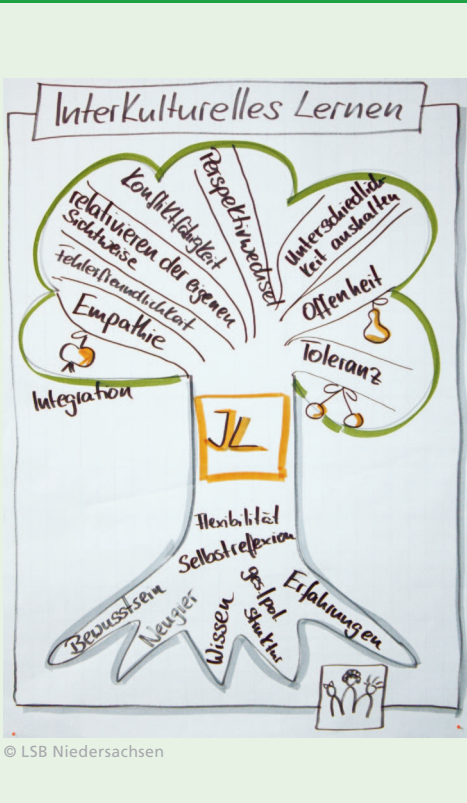 InterKulturelles Lernen
Perspektivwechsel
Konfliktfähigkeit
relativieren der eigenen
Sichtweise
Fehlerfreundlichkeit
Empathie
Integration
Unterschiedlich-
keit aushalten
Offenheit
Toleranz
JL
Flexibilität
Selbstreflexion
Bewusstsein
Neugier
Wissen
ges/pol.
Struktur
Erfahrungen
© LSB Niedersachsen